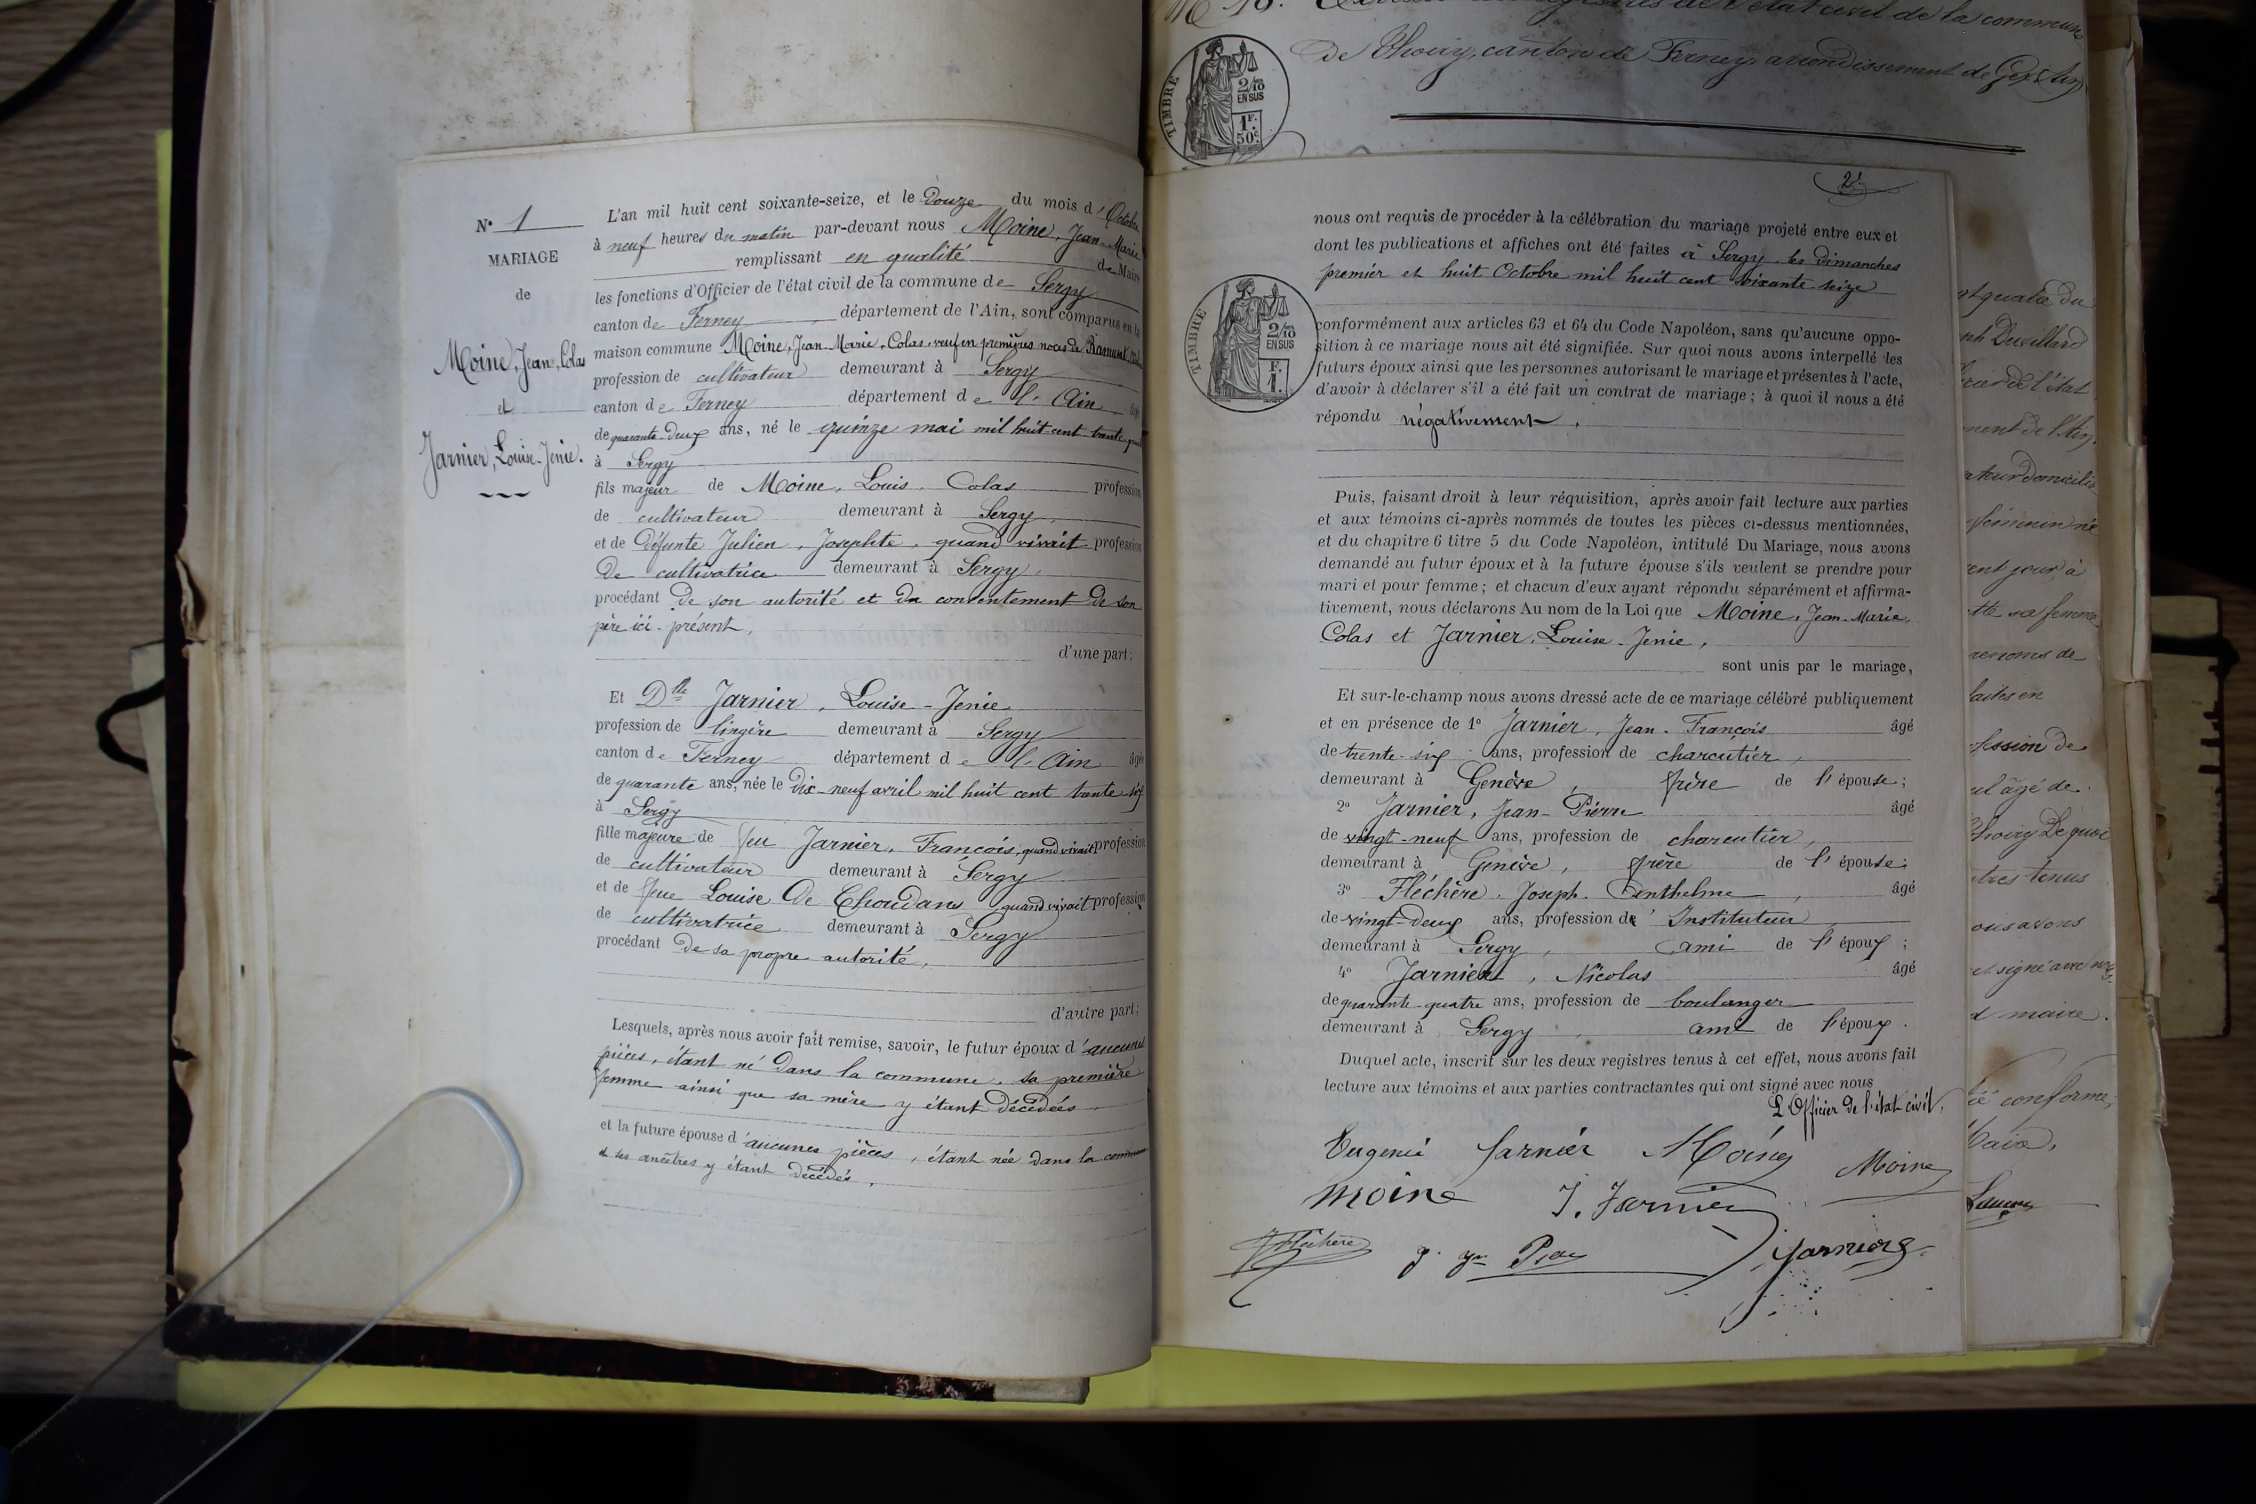 N° 1
MARIAGE
de
Moine, Jean, Colas
et
Jarnier, Louise-Jenie.
L'an mil huit cent soixante-seize, et le Douze du mois d'Octobre
à neuf heures du matin par-devant nous Moine, Jean-Marie
remplissant en qualité de Maire
les fonctions d'Officier de l'état civil de la commune de Sergy
canton de Ferney département de l'Ain, sont comparus en la
maison commune Moine, Jean-Marie, Colas, veuf en premières noces de
profession de cultivateur demeurant à Sergy
canton de Ferney département de l'Ain âgé
de quarante-deux ans, né le quinze mai mil huit cent trente
à Sergy
fils majeur de Moine, Louis, Colas profession
de cultivateur demeurant à Sergy,
et de Défunte Julien, Josephte, quand vivait profession
De cultivatrice demeurant à Sergy,
procédant de son autorité et du consentement De son
père ici-présent,
d'une part;
Et Dlle Jarnier, Louise-Jenie
profession de lingère demeurant à Sergy
canton de Ferney département de l'Ain âgée
de quarante ans, née le Dix-neuf avril mil huit cent trente six
à Sergy
fille majeure de feu Jarnier, François, quand vivait profession
de cultivateur demeurant à Sergy
et de feue Louise De Choudans quand vivait profession
de cultivatrice demeurant à Sergy
procédant de sa propre autorité,
d'autre part;
Lesquels, après nous avoir fait remise, savoir, le futur époux d'aucunes
pièces, étant né Dans la commune, sa première
femme ainsi que sa mère y étant Décédées
et la future épouse d'aucunes pièces, étant née Dans la commune
et ses ancêtres y étant Décédés,
de Thoiry, canton de Ferney, arrondissement de Gex (Ain)
TIMBRE
2/10
EN SUS
1F.
50c
2e
nous ont requis de procéder à la célébration du mariage projeté entre eux et
dont les publications et affiches ont été faites à Sergy les dimanches
premier et huit Octobre mil huit cent soixante seize
TIMBRE
2/10
EN SUS
F.
1.
conformément aux articles 63 et 64 du Code Napoléon, sans qu'aucune oppo-
sition à ce mariage nous ait été signifiée. Sur quoi nous avons interpellé les
futurs époux ainsi que les personnes autorisant le mariage et présentes à l'acte,
d'avoir à déclarer s'il a été fait un contrat de mariage; à quoi il nous a été
répondu négativement.
Puis, faisant droit à leur réquisition, après avoir fait lecture aux parties
et aux témoins ci-après nommés de toutes les pièces ci-dessus mentionnées,
et du chapitre 6 titre 5 du Code Napoléon, intitulé Du Mariage, nous avons
demandé au futur époux et à la future épouse s'ils veulent se prendre pour
mari et pour femme; et chacun d'eux ayant répondu séparément et affirma-
tivement, nous déclarons Au nom de la Loi que Moine, Jean-Marie,
Colas et Jarnier, Louise-Jenie,
sont unis par le mariage,
Et sur-le-champ nous avons dressé acte de ce mariage célébré publiquement
et en présence de 1° Jarnier, Jean-François âgé
de trente-six ans, profession de charcutier,
demeurant à Genève, frère de l'épouse;
2° Jarnier, Jean-Pierre âgé
de vingt-neuf ans, profession de charcutier,
demeurant à Genève, frère de l'épouse;
3° Fléchère, Joseph, Anthelme, âgé
de vingt-deux ans, profession d'Instituteur,
demeurant à Sergy, ami de l'époux;
4° Jarnier, Nicolas âgé
de quarante-quatre ans, profession de boulanger
demeurant à Sergy, ami de l'époux.
Duquel acte, inscrit sur les deux registres tenus à cet effet, nous avons fait
lecture aux témoins et aux parties contractantes qui ont signé avec nous
L'Officier de l'état civil.
Eugenie Jarnier Moine Moine
moine J. Jarnier
Fléchère